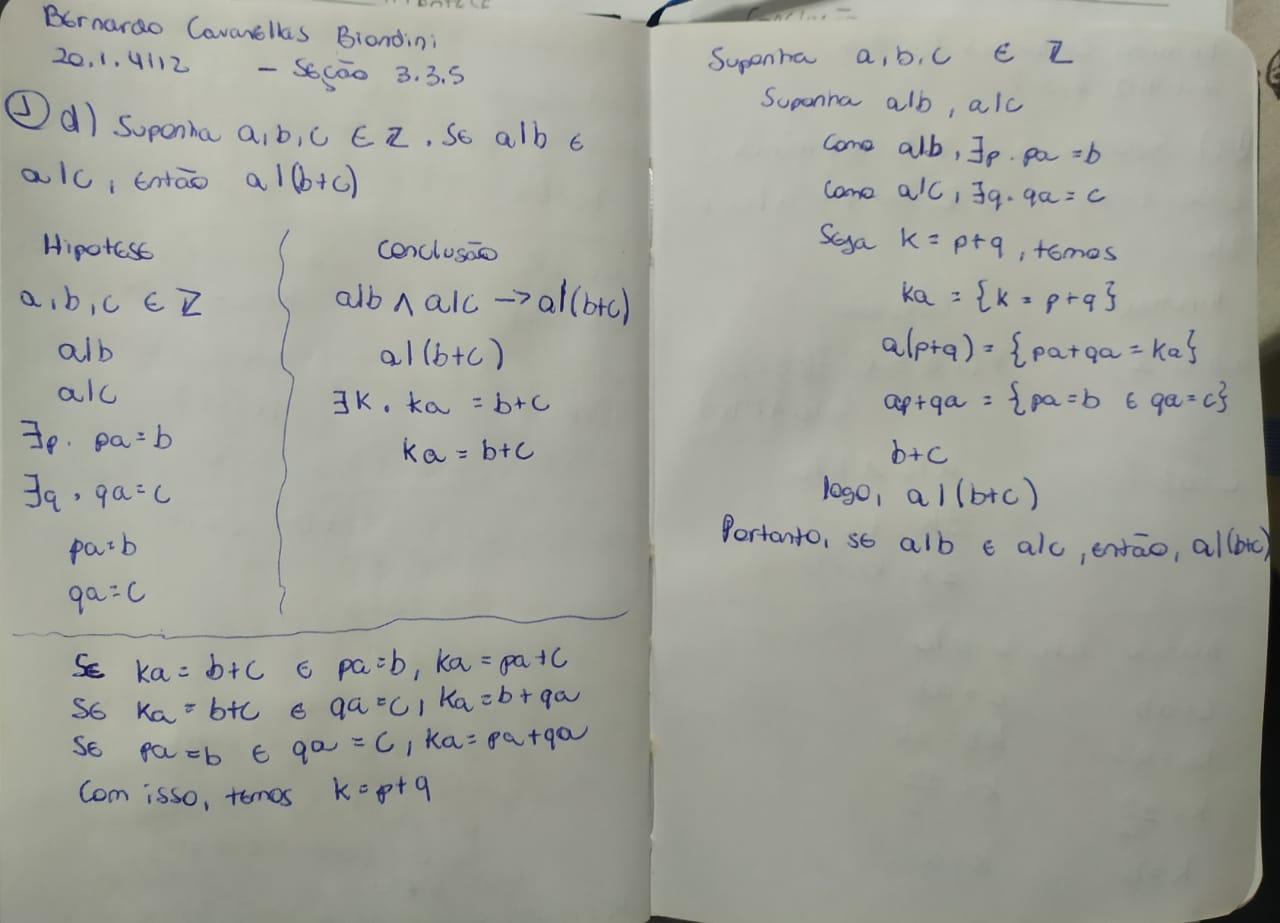 Bernardo Cavanellas Biondini
20.1.4112 - Seção 3.3.5
① d) Suponha a,b,c ∈ ℤ. Se a|b e
a|c, então a|(b+c)
Hipotese
a,b,c ∈ ℤ
a|b
a|c
∃p. pa=b
∃q. qa=c
pa=b
qa=c
conclusão
a|b ∧ a|c → a|(b+c)
a|(b+c)
∃k. ka = b+c
ka = b+c
Se ka = b+c e pa=b, ka = pa+c
Se ka = b+c e qa=c, ka=b+qa
Se pa=b e qa=c, ka=pa+qa
Com isso, temos k=p+q
Suponha a,b,c ∈ ℤ
Suponha a|b, a|c
Como a|b, ∃p. pa=b
Como a|c, ∃q. qa=c
Seja k = p+q, temos
ka = {k = p+q}
a(p+q) = {pa+qa = ka}
ap+qa = {pa=b e qa=c}
b+c
logo, a|(b+c)
Portanto, se a|b e a|c, então, a|(b+c)